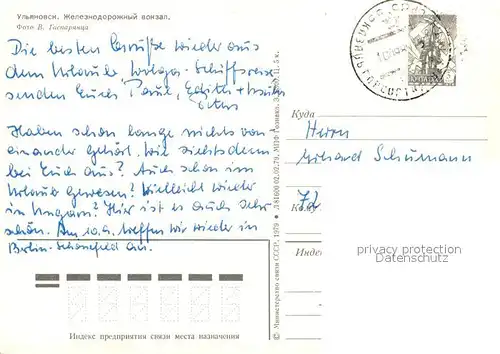 Ульяновск. Железнодорожный вокзал.
Фото В. Гаспарянца
Die besten Grüße wieder aus
dem Urlaub, Wolga-Schiffsreise
senden Euch Paul, Edith +
Haben schon lange nichts von
einander gehört. Wie siehts denn
bei Euch aus? Auch schon im
Urlaub gewesen? Vielleicht wieder
in Ungarn? Hier ist es auch sehr
schön. Am 10.9. treffen wir wieder in
Berlin-Schönefeld an.
Индекс предприятия связи места назначения
© Министерство связи СССР, 1979 • Д81600 02.02.79. МПФ Гознака. З. Ц. 5 к.
Куда
Herrn
Erhard Schumann
Кому
7d
Индекс
privacy protection
Datenschutz